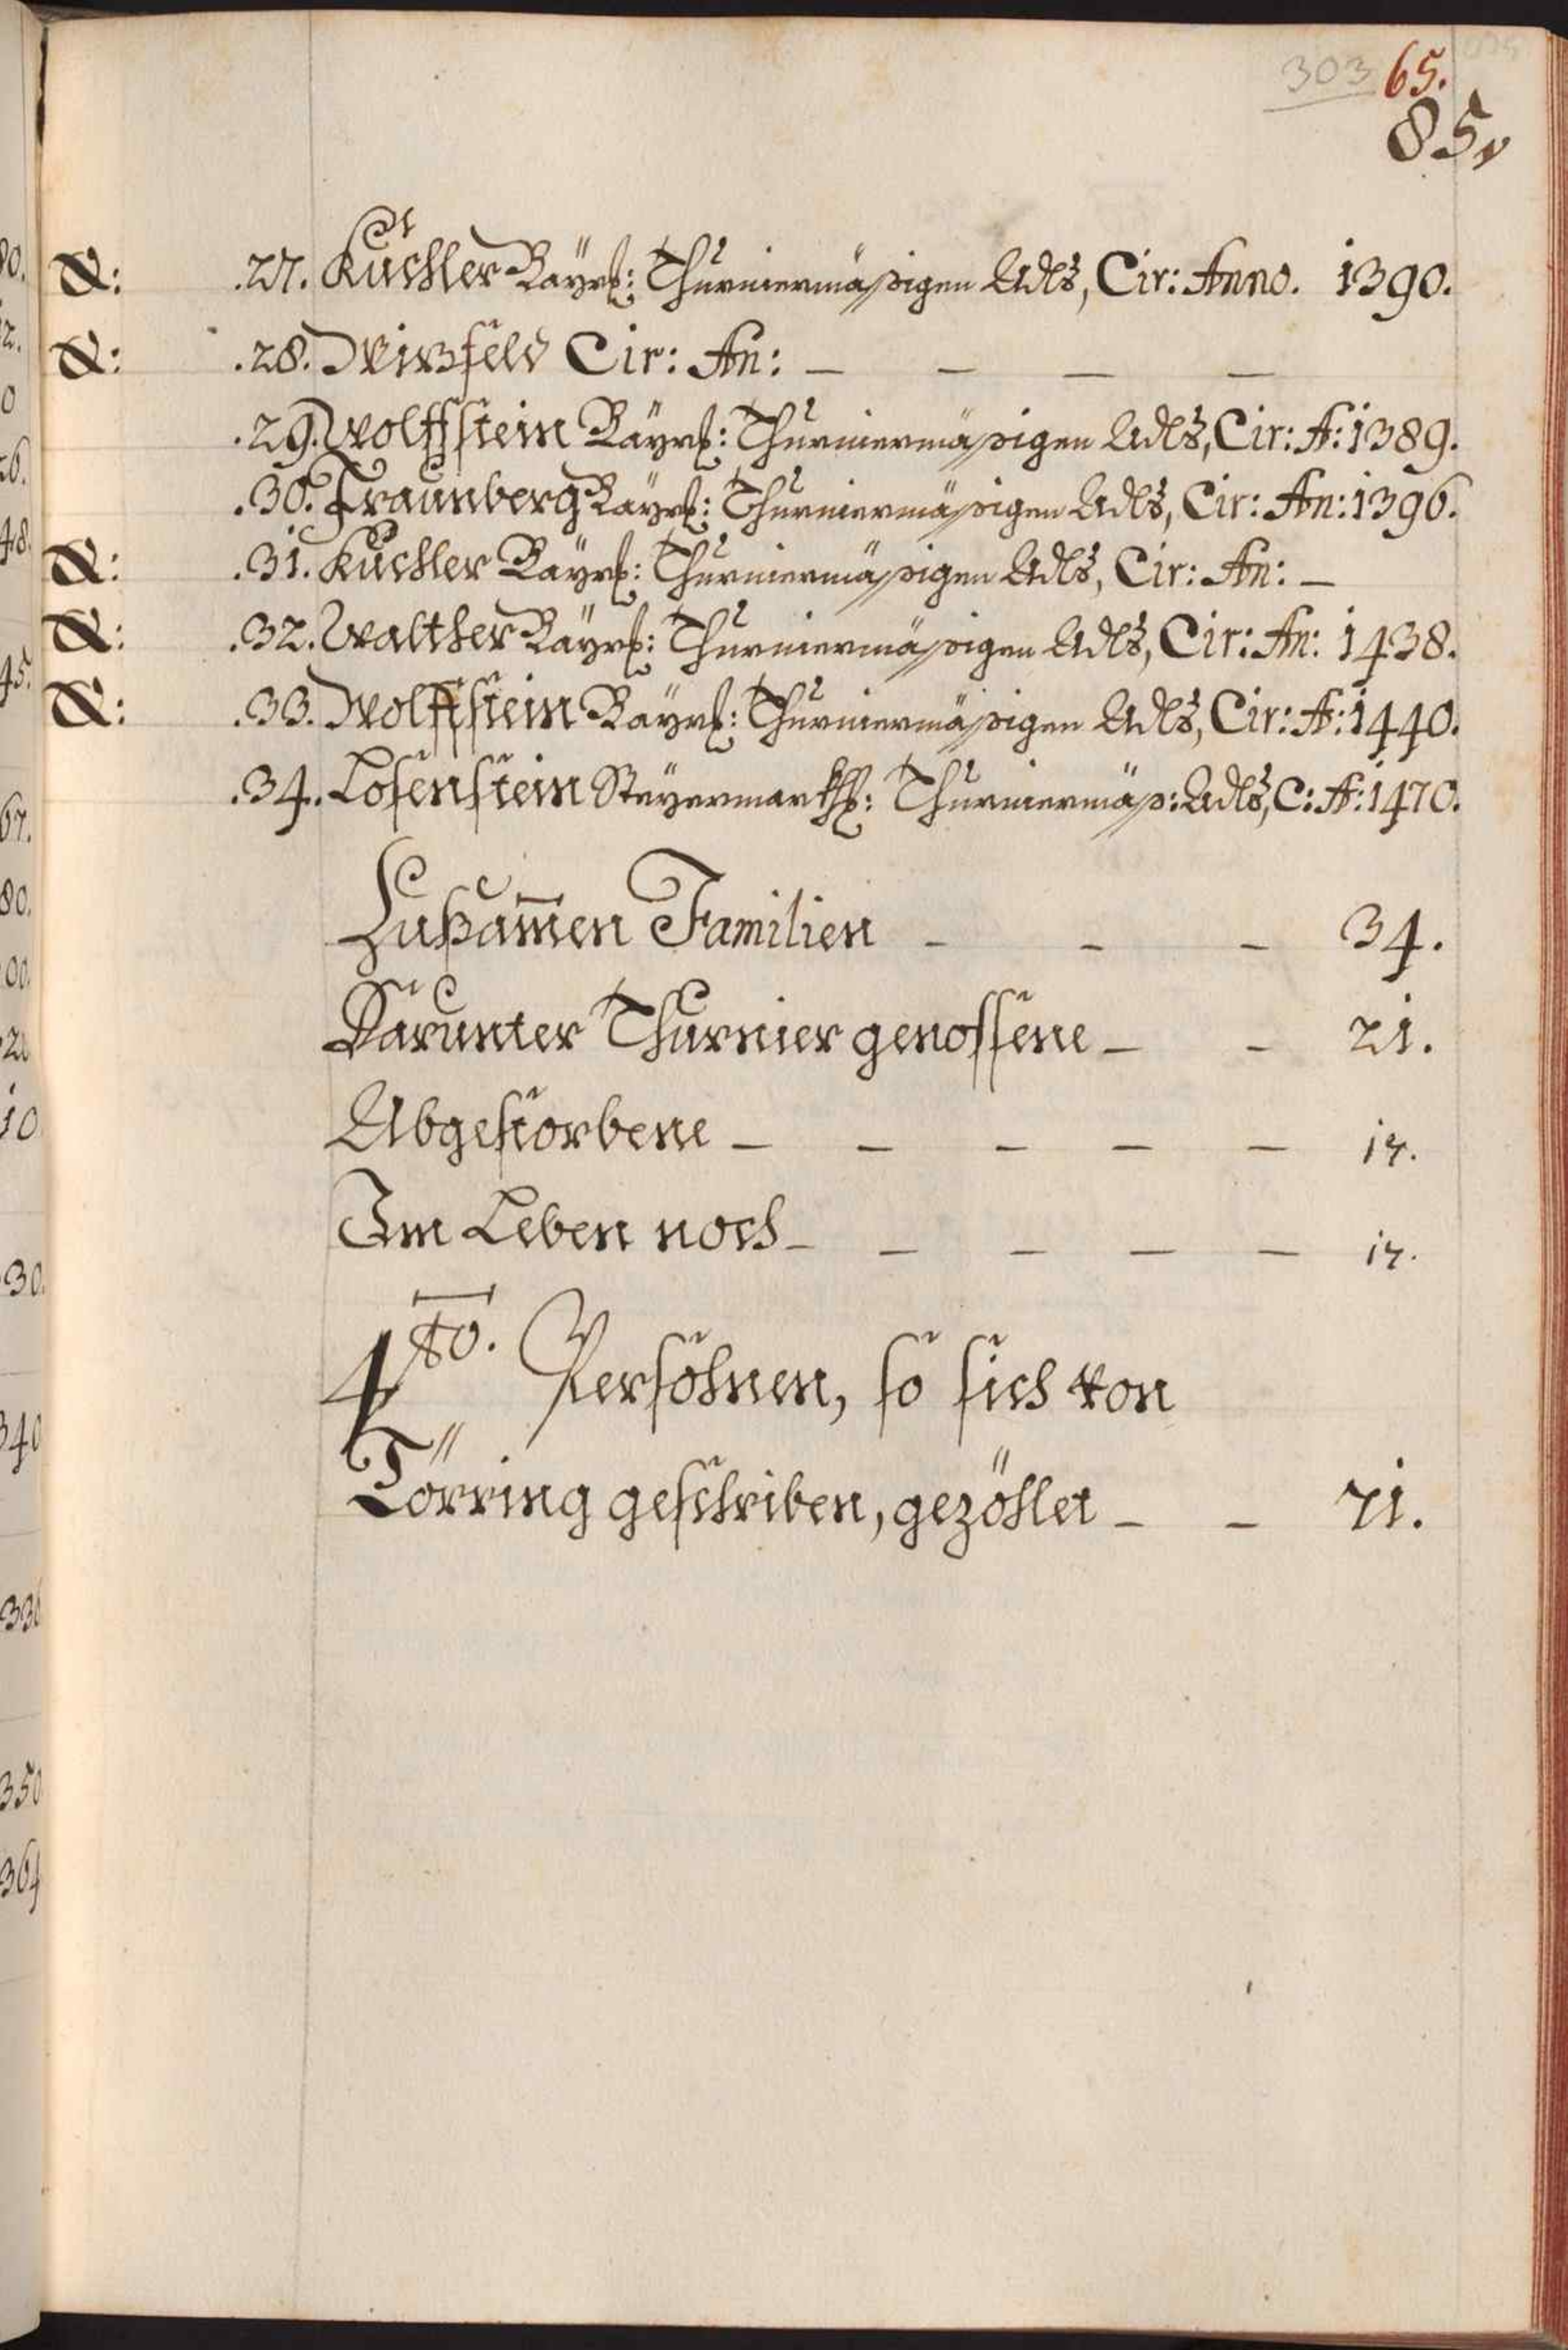 303 65.
85.
&: .27. Kuchler Bayrl: Thurniermäßigen Adls, Cir: Anno. 1390.
&: .28. Wirsfeld Cir: An: — — — —
.29. Wolffstein Bäyrl: Thurniermäßigen Adls, Cir: A: 1389.
.30. Fraunberg Bayrl: Thurniermäßigen Adls, Cir: An: 1396.
&: .31. Kuchler Bayrl: Thurniermäßigen Adls, Cir: An: —
&: .32. Walther Bäyrl: Thurniermäßigen Adls, Cir: An: 1438.
&: .33. Wolffstein Bäyrl: Thurniermäßigen Adls, Cir: A: 1440.
.34. Losenstein Steyermarkhl: Thurniermäß: Adls, C: A: 1470.
Zußam̄en Familien — — — 34.
Darunter Thurnier genossene — — 21.
Abgestorbene — — — — — 17.
Im Leben noch — — — — — 17.
4to. Persohnen, so sich von
Törring geschriben, gezöhlet — — 71.